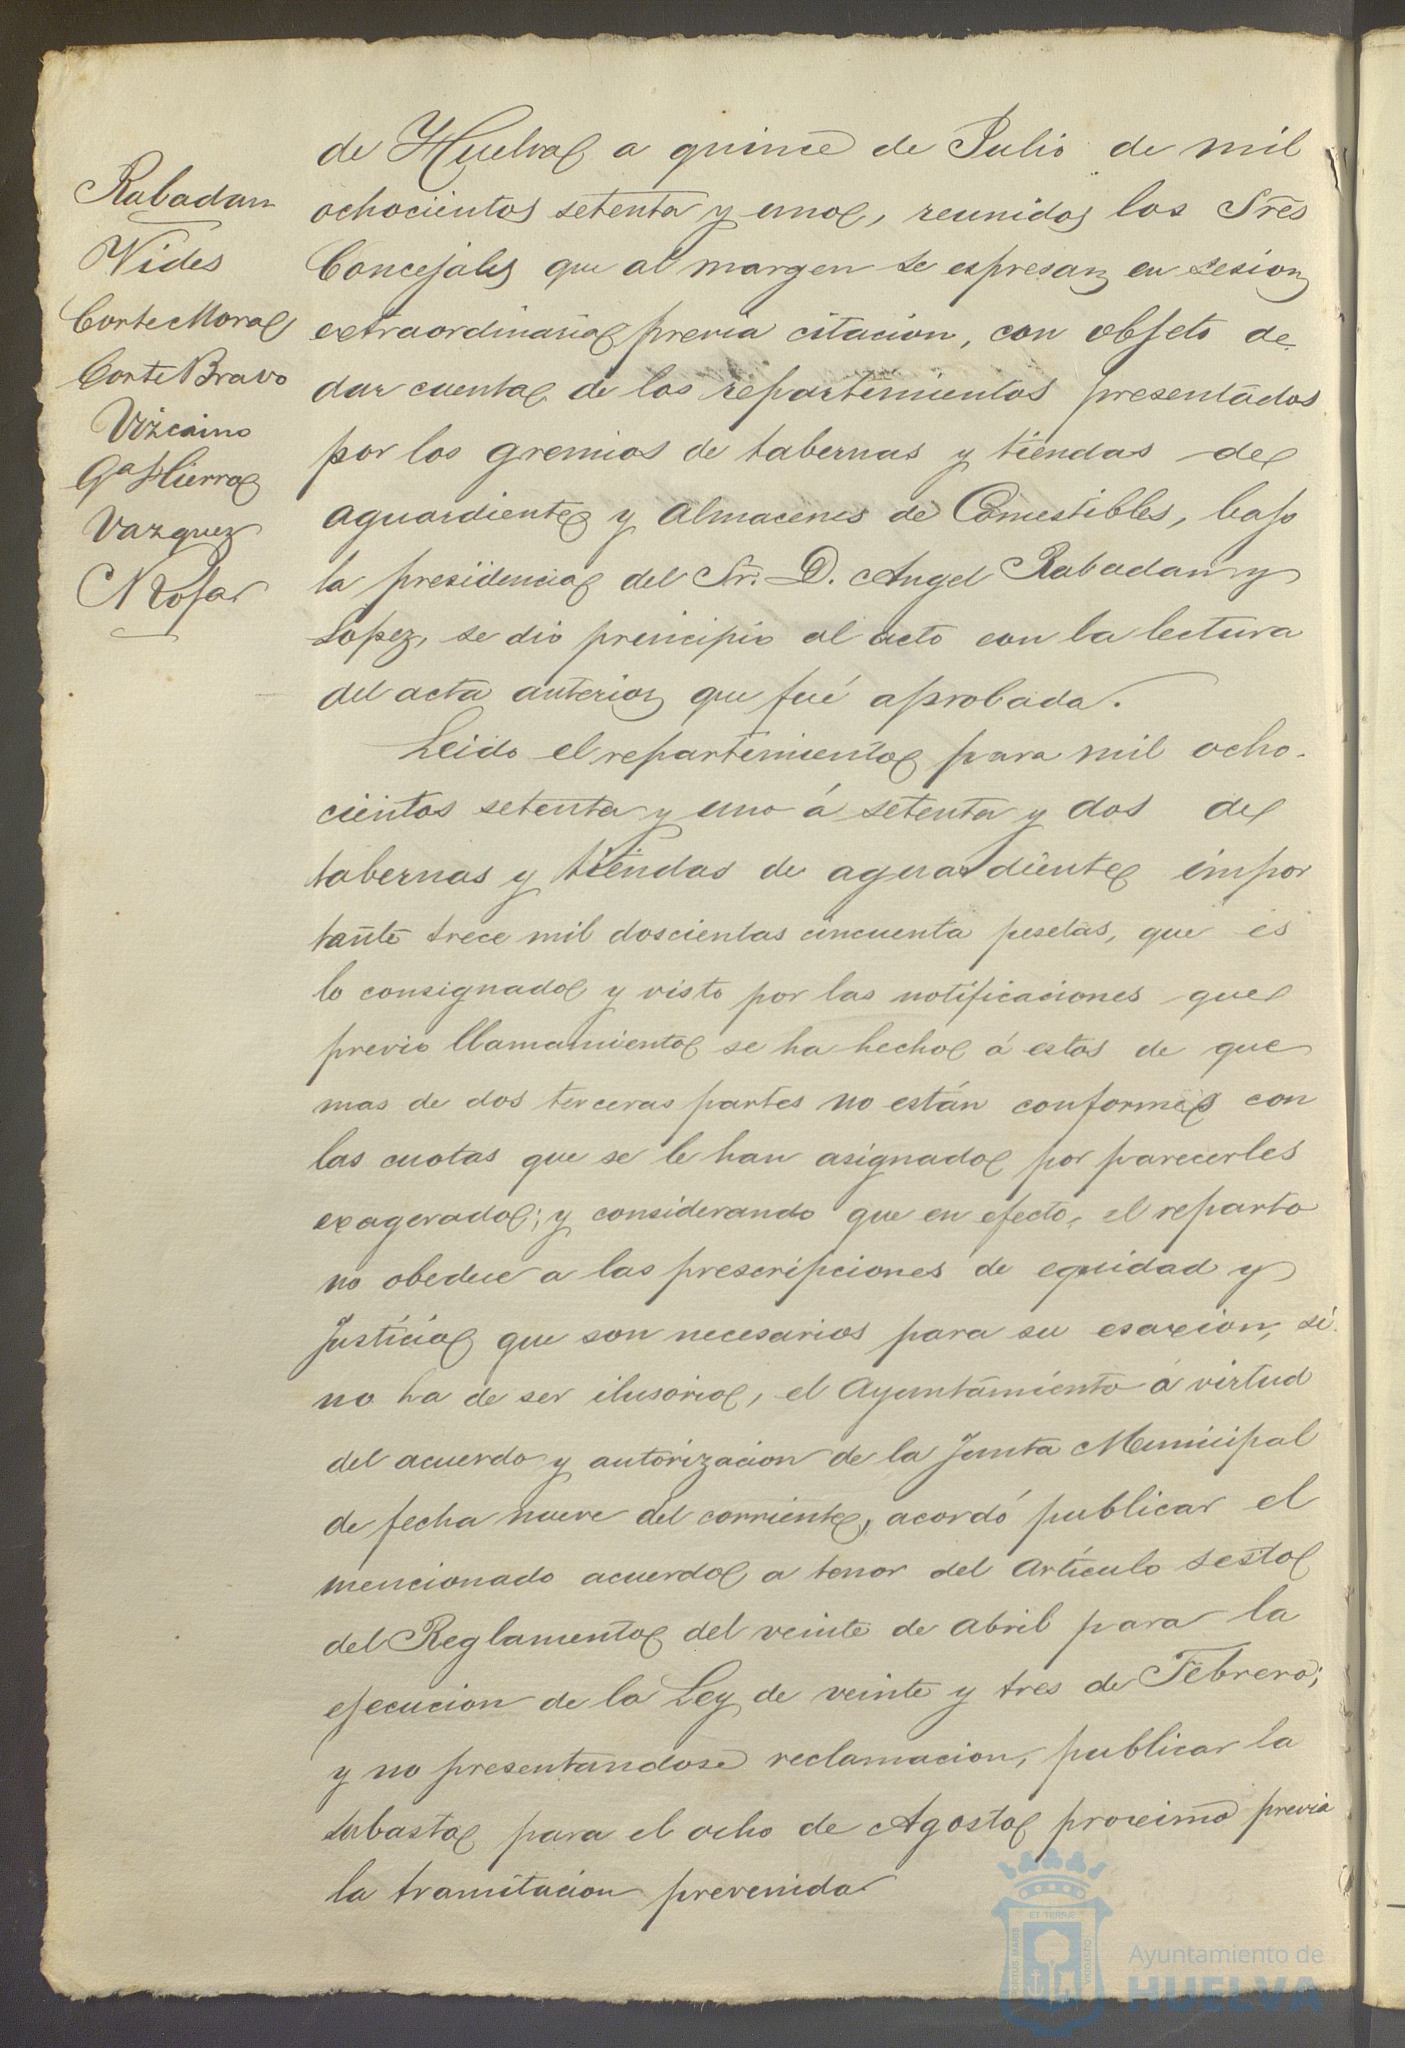 Rabadan
Vides
Corte Mora
Corte Bravo
Vizcaino
Gª Hierro
Vazquez
de Huelva a quince de Julio de mil
ochocientos setenta y uno, reunidos los Sres
Concejales que al margen se espresan en sesion
extraordinaria previa citacion, con objeto de
dar cuenta de los repartimientos presentados
por los gremios de tabernas y tiendas de
aguardiente y almacenes de Comestibles, bajo
la presidencia del Sr. D. Angel Rabadan y
Lopez, se dio principio al acto con la lectura
del acta anterior que fué aprobada.
Leido el repartimiento para mil ocho-
cientos setenta y uno á setenta y dos de
tabernas y tiendas de aguardiente impor
tante trece mil doscientas cincuenta pesetas, que es
lo consignado y visto por las notificaciones que
previo llamamiento se ha hecho á estos de que
mas de dos terceras partes no están conformes con
las cuotas que se le han asignado por parecerles
exagerado; y considerando que en efecto, el reparto
no obedece a las prescripciones de equidad y
Justicia que son necesarios para su esaxion, si
no ha de ser ilusorio, el Ayuntamiento á virtud
del acuerdo y autorizacion de la Junta Municipal
de fecha nueve del corriente, acordó publicar el
mencionado acuerdo a tenor del Artículo sesto
del Reglamento del veinte de Abril para la
ejecucion de la Ley de veinte y tres de Febrero;
y no presentandose reclamacion, publicar la
subasta para el ocho de Agosto proximo previa
la tramitacion prevenida
Ayuntamiento de
HUELVA